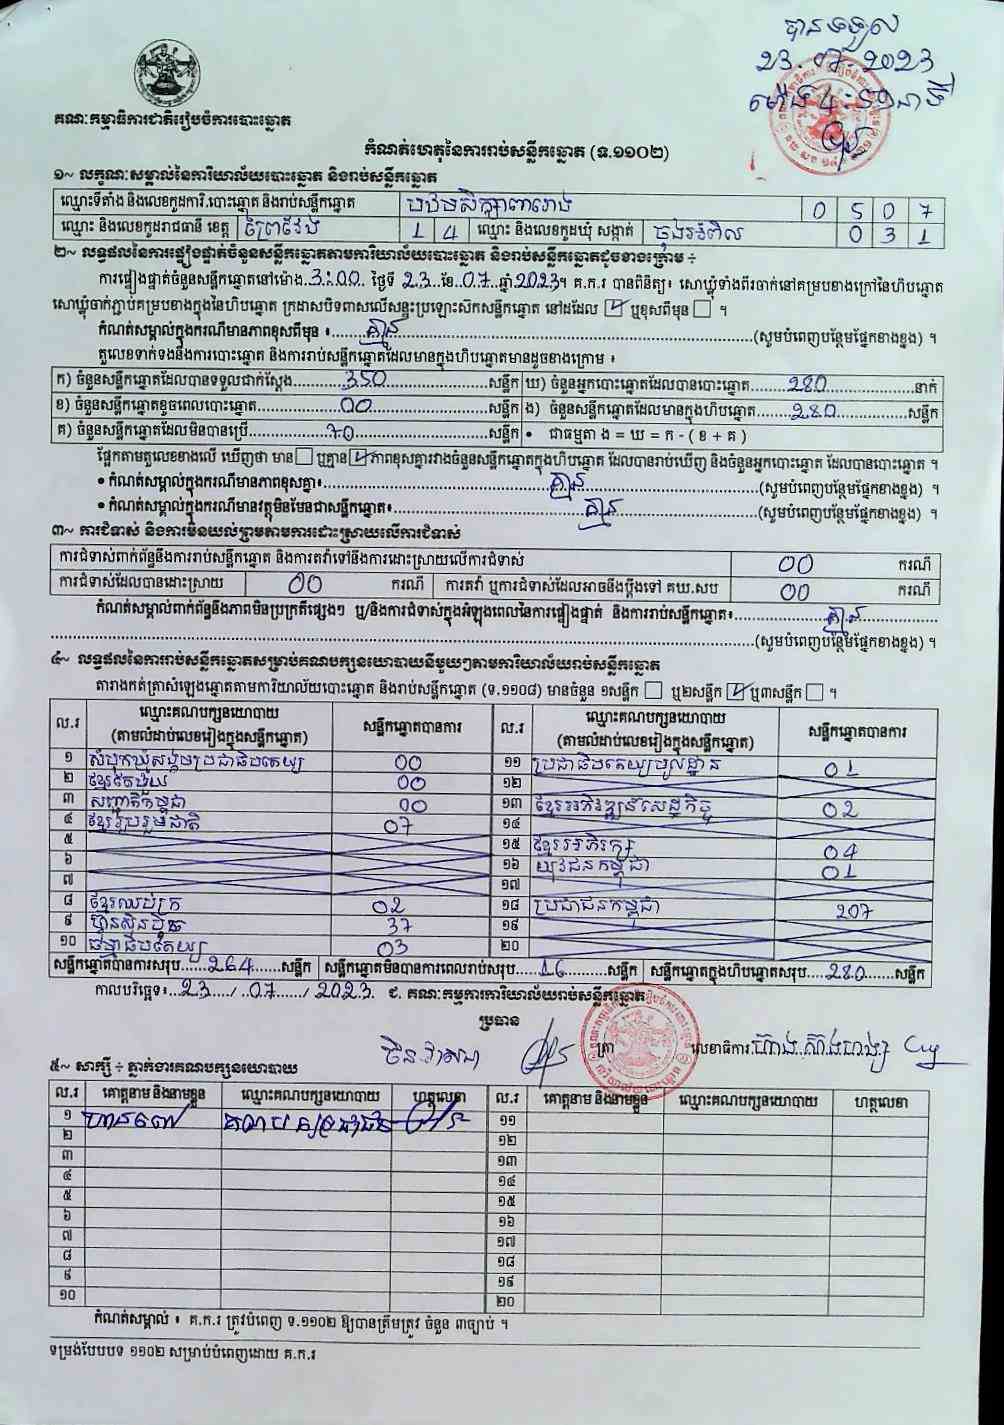 បានទទួល
23.07.2023
ម៉ោង 4:
គណៈកម្មាធិការជាតិរៀបចំការបោះឆ្នោត
កំណត់ហេតុនៃការរាប់សន្លឹកឆ្នោត (ទ.១១០២)
១~ លក្ខណៈសម្គាល់នៃការិយាល័យបោះឆ្នោត និងរាប់សន្លឹកឆ្នោត
ឈ្មោះទីតាំង និងលេខកូដការិ.បោះឆ្នោត និងរាប់សន្លឹកឆ្នោត 0 5 0 7
ឈ្មោះ និងលេខកូដរាជធានី ខេត្ត ព្រៃវែង 1 4 ឈ្មោះ និងលេខកូដឃុំ សង្កាត់ 0 3 1
២~ លទ្ធផលនៃការផ្ទៀងផ្ទាត់ចំនួនសន្លឹកឆ្នោតតាមការិយាល័យបោះឆ្នោត និងរាប់សន្លឹកឆ្នោតដូចខាងក្រោម ÷
ការផ្ទៀងផ្ទាត់ចំនួនសន្លឹកឆ្នោតនៅម៉ោង 3:00 ថ្ងៃទី 23 ខែ 07 ឆ្នាំ 2023។ គ.ក.រ បានពិនិត្យ៖ សោឃ្លុំទាំងពីរចាក់នៅគម្របខាងក្រៅនៃហិបឆ្នោត
សោឃ្លុំចាក់ភ្ជាប់គម្របខាងក្នុងនៃហិបឆ្នោត ក្រដាសបិទពាសលើសន្ទះប្រឡោះស៊កសន្លឹកឆ្នោត នៅដដែល ☑ ឬខុសពីមុន ☐ ។
កំណត់សម្គាល់ក្នុងករណីមានភាពខុសពីមុន ៖ គ្មាន (សូមបំពេញបន្ថែមផ្នែកខាងខ្នង) ។
តួលេខទាក់ទងនឹងការបោះឆ្នោត និងការរាប់សន្លឹកឆ្នោតដែលមានក្នុងហិបឆ្នោតមានដូចខាងក្រោម ៖
ក) ចំនួនសន្លឹកឆ្នោតដែលបានទទួលជាក់ស្តែង 350 សន្លឹក ឃ) ចំនួនអ្នកបោះឆ្នោតដែលបានបោះឆ្នោត 280 នាក់
ខ) ចំនួនសន្លឹកឆ្នោតខូចពេលបោះឆ្នោត 00 សន្លឹក ង) ចំនួនសន្លឹកឆ្នោតដែលមានក្នុងហិបឆ្នោត 280 សន្លឹក
គ) ចំនួនសន្លឹកឆ្នោតដែលមិនបានប្រើ 70 សន្លឹក • ជាធម្មតា ង = ឃ = ក - ( ខ + គ )
ផ្អែកតាមតួលេខខាងលើ ឃើញថា មាន ☐ ឬគ្មាន ☑ ភាពខុសគ្នារវាងចំនួនសន្លឹកឆ្នោតក្នុងហិបឆ្នោត ដែលបានរាប់ឃើញ និងចំនួនអ្នកបោះឆ្នោត ដែលបានបោះឆ្នោត ។
• កំណត់សម្គាល់ក្នុងករណីមានភាពខុសគ្នា៖ គ្មាន (សូមបំពេញបន្ថែមផ្នែកខាងខ្នង) ។
• កំណត់សម្គាល់ក្នុងករណីមានវត្ថុមិនមែនជាសន្លឹកឆ្នោត៖ គ្មាន (សូមបំពេញបន្ថែមផ្នែកខាងខ្នង) ។
៣~ ការជំទាស់ និងការមិនយល់ព្រមតាមការដោះស្រាយលើការជំទាស់
ការជំទាស់ពាក់ព័ន្ធនឹងការរាប់សន្លឹកឆ្នោត និងការតវ៉ាទៅនឹងការដោះស្រាយលើការជំទាស់ 00 ករណី
ការជំទាស់ដែលបានដោះស្រាយ 00 ករណី ការតវ៉ា ឬការជំទាស់ដែលអាចនឹងប្តឹងទៅ គឃ.សប 00 ករណី
កំណត់សម្គាល់ពាក់ព័ន្ធនឹងភាពមិនប្រក្រតីផ្សេងៗ ឬ/និងការជំទាស់ក្នុងអំឡុងពេលនៃការផ្ទៀងផ្ទាត់ និងការរាប់សន្លឹកឆ្នោត៖ គ្មាន
(សូមបំពេញបន្ថែមផ្នែកខាងខ្នង) ។
៤~ លទ្ធផលនៃការរាប់សន្លឹកឆ្នោតសម្រាប់គណបក្សនយោបាយនីមួយៗតាមការិយាល័យរាប់សន្លឹកឆ្នោត
តារាងកត់ត្រាសំឡេងឆ្នោតតាមការិយាល័យបោះឆ្នោត និងរាប់សន្លឹកឆ្នោត (ទ.១១០៨) មានចំនួន ១សន្លឹក ☐ ឬ២សន្លឹក ☑ ឬ៣សន្លឹក ☐ ។
ល.រ ឈ្មោះគណបក្សនយោបាយ (តាមលំដាប់លេខរៀងក្នុងសន្លឹកឆ្នោត) សន្លឹកឆ្នោតបានការ ល.រ ឈ្មោះគណបក្សនយោបាយ (តាមលំដាប់លេខរៀងក្នុងសន្លឹកឆ្នោត) សន្លឹកឆ្នោតបានការ
១ សំបុកឃ្មុំសង្គមប្រជាធិបតេយ្យ 00 ១១ ប្រជាធិបតេយ្យមូលដ្ឋាន 01
២ ខ្មែរតែមួយ 00 ១២
៣ សញ្ជាតិកម្ពុជា 10 ១៣ ខ្មែរអភិវឌ្ឍន៍សេដ្ឋកិច្ច 02
៤ ខ្មែររួបរួមជាតិ 07 ១៤
៥ ១៥ ខ្មែរអភិរក្ស 04
៦ ១៦ យុវជនកម្ពុជា 01
៧ ១៧
៨ ខ្មែរឈប់ក្រ 02 ១៨ ប្រជាជនកម្ពុជា 207
៩ ហ៊្វុនស៊ិនប៉ិច 37 ១៩
១០ ធម្មាធិបតេយ្យ 03 ២០
សន្លឹកឆ្នោតបានការសរុប 264 សន្លឹក សន្លឹកឆ្នោតមិនបានការពេលរាប់សរុប 16 សន្លឹក សន្លឹកឆ្នោតក្នុងហិបឆ្នោតសរុប 280 សន្លឹក
កាលបរិច្ឆេទ៖ 23 / 07 / 2023 ជ. គណៈកម្មការការិយាល័យរាប់សន្លឹកឆ្នោត
ប្រធាន
ត្រា លេខាធិការ
៥~ សាក្សី ÷ ភ្នាក់ងារគណបក្សនយោបាយ
ល.រ គោត្តនាម និងនាមខ្លួន ឈ្មោះគណបក្សនយោបាយ ហត្ថលេខា ល.រ គោត្តនាម និងនាមខ្លួន ឈ្មោះគណបក្សនយោបាយ ហត្ថលេខា
១ ១១
២ ១២
៣ ១៣
៤ ១៤
៥ ១៥
៦ ១៦
៧ ១៧
៨ ១៨
៩ ១៩
១០ ២០
កំណត់សម្គាល់ ៖ គ.ក.រ ត្រូវបំពេញ ទ.១១០២ ឱ្យបានត្រឹមត្រូវ ចំនួន ៣ច្បាប់ ។
ទម្រង់បែបបទ ១១០២ សម្រាប់បំពេញដោយ គ.ក.រ